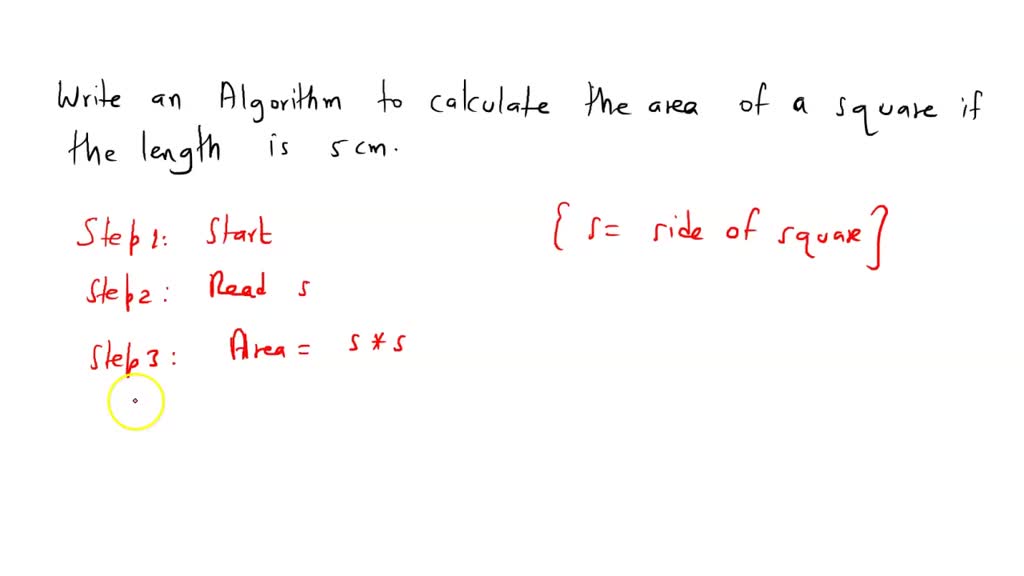 Write an Algorithm to calculate the area of a square if
the length is 5 cm.
Step 1: Start
{ s = side of square }
Step 2: Read s
Step 3: Area = s * s